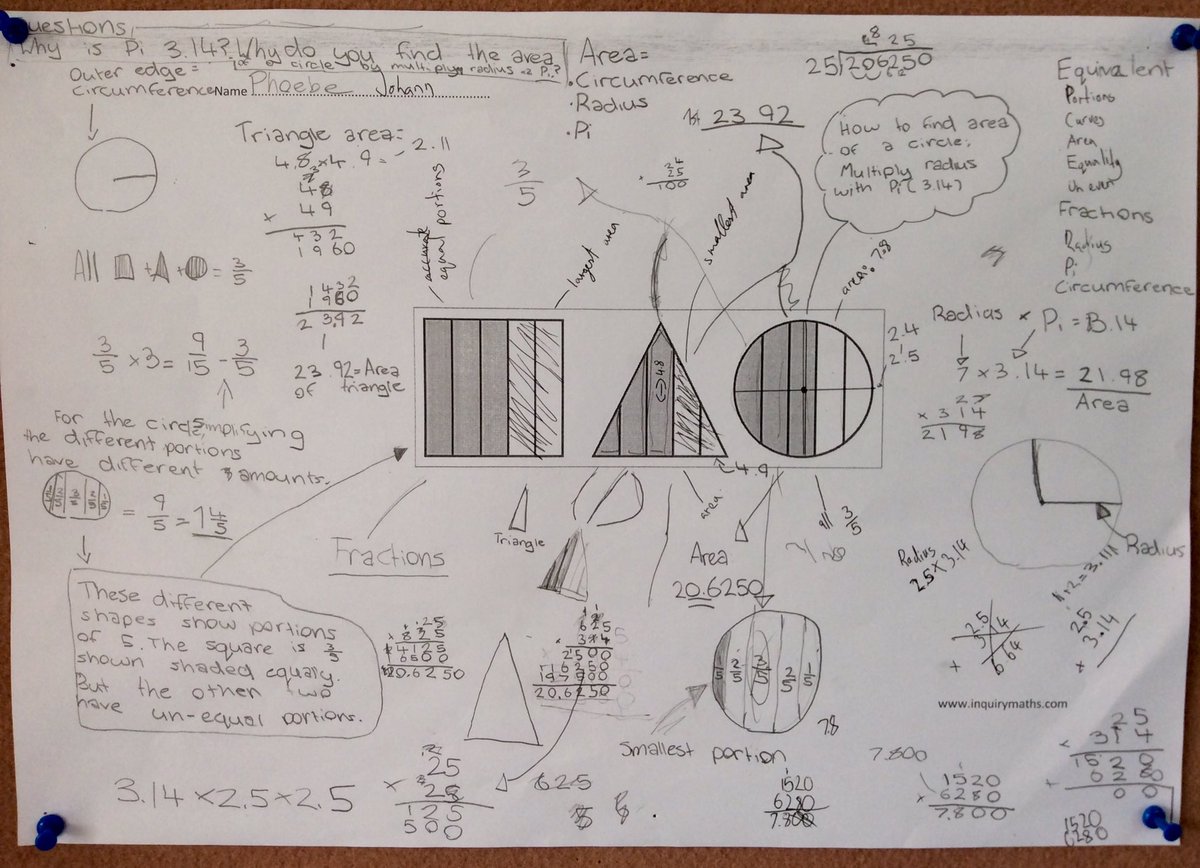 Questions
Why is Pi 3.14? Why do you find the area
of a circle by multiply radius
Pi?
Outer edge =
circumference
Name Phoebe Johann
Triangle area:
4.8 × 4.9 =
2.11
48
× 49
432
1960
1432
1960
2392
23.92 = Area
of triangle
All + + = 3/5
3/5 × 3 = 9/15 - 3/5
For the circle, simplifying
the different portions
have different amounts.
= 9/5 = 1 4/5
These different
shapes show portions
of 5. The square is 3/5
shown shaded equaly.
But the other two
have un-equal portions.
3.14 × 2.5 × 2.5
Area =
• Circumference
• Radius
• Pi
3/5
25
100
23 92
8 25
25 206250
How to find area
of a circle:
Multiply radius
with Pi (3.14)
accurate
equal portions
largest area
smallest area
area: 7.8
2.4
2.5
4.8
4.9
Equivalent
Portions
Curves
Area
Equality
Un even
Fractions
Radius
Pi
Circumference
Radias × Pi = 3.14
7 × 3.14 = 21.98
Area
× 314
2198
Radius
Radius
2.5 × 3.14
2.5
× 3.14
Fractions
Triangle
area
Area
20.6250
all 3/5
125
× 825
4125
6500
20.6250
625
2500
16250
20.6250
2/5
2/5
1/5
7.8
Smallest portion
25
× 25
125
500
625
1520
6280
7.800
7.800
1520
× 6280
7.800
www.inquirymaths.com
25
× 314
1520
6280